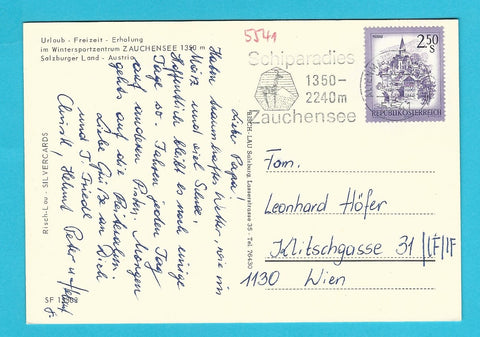 Urlaub - Freizeit - Erholung
im Wintersportzentrum ZAUCHENSEE 1350 m
Salzburger Land - Austria
5541
Schiparadies
1350-
2240m
Zauchensee
2.50
S
REPUBLIK ÖSTERREICH
Lieber Papa!
Haben traumhaftes Wetter, wie im
März und viel Schnee,
Hoffentlich bleibt es noch einige
Tage so. Fahren jeden Tag
auf anderen Pisten, Morgen
gehts auf die
Liebe Grüße an Dich
und T. Friedl
Christl, Helmut Peter u.
Risch-Lau SILVERCARDS
SF
RISCH-LAU Salzburg Lasserstrasse 35 - Tel. 76430
Fam.
Leonhard Höfer
Klitschgasse 31
1130 Wien